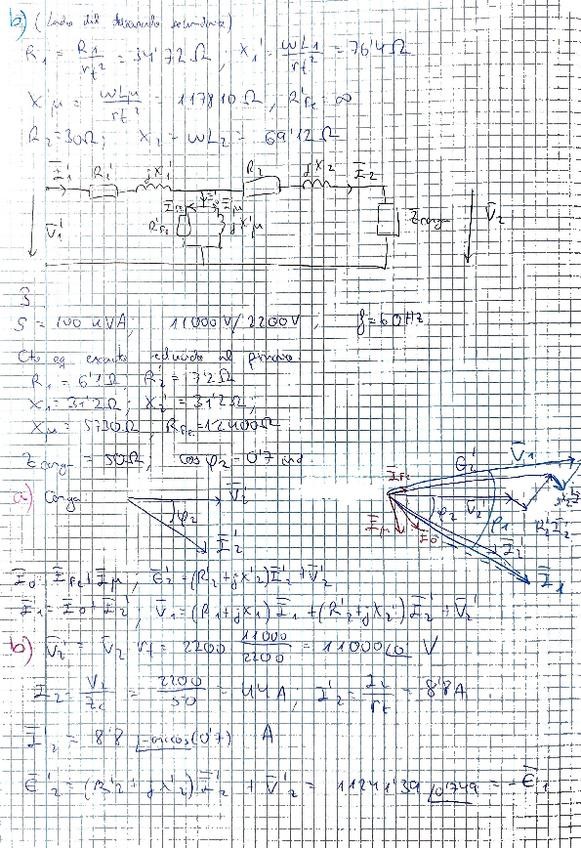 b) (Lado del secundario)
R1' = R1/rt² = 34'72 Ω ; X1' = ωL1/rt² = 76'4 Ω
Xμ' = ωLμ/rt² = 117810 Ω, R'Fe = ∞
R2 = 30Ω ; X2 = ωL2 = 69'12 Ω
I1' R1' jX1' R2 jX2 I2
V1' R'Fe jX'μ Zcarga V2
3
S = 100 kVA; 11000V/2200V, f = 60Hz
Cto eq. exacto reducido al primario:
R1 = 6'1Ω, R2' = Ω
X1 = 31'2Ω; X2' = 31'2Ω;
Xμ = 5730Ω, RFe = 12400Ω
Zcarga = 50Ω, cos φ2 = 0'7 ind
a) Carga V2' φ2 I2'
IFe Iμ I0 φ2 V2' φ1 R2'I2' I2' I1 V1
I0 = IFe + Iμ, E2' = (R2' + jX2')I2' + V2'
I1 = I0 + I2', V1 = (R1 + jX1)I1 + (R2' + jX2')I2' + V2'
b) V2' = V2 rt = 2200 11000/2200 = 11000∠0 V
I2 = V2/Zc = 2200/50 = 44 A, I2' = I2/rt = 8'8 A
I2' = 8'8 ∠-arccos(0'7) A
E2' = (R2' + jX2')I2' + V2' = 11241'39 ∠0'749 = -E1